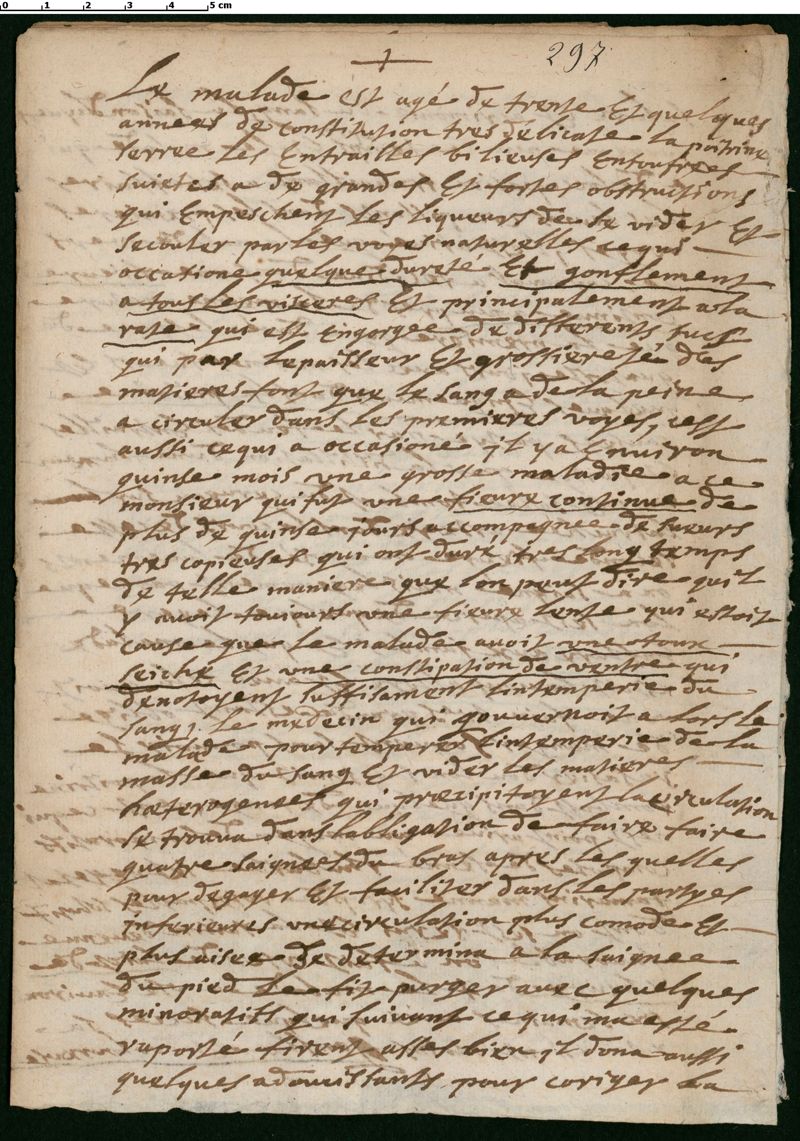 0 1 2 3 4 5 cm
297
Le malade est agé de trente Et quelques
années de constitution tres délicate la poitrine
serree les Entrailles bilieuses Entoufrees
suietes a de grandes Et fortes obstructions
qui Empeschent les liqueurs de se vider Et
secouler par les voyes naturelles ce qui
occasione quelque dureté Et gonflement
a tous les visceres Et principalement a la
rate qui est Engorgee de differents sucs
qui par lepaisseur Et grossiereté des
matieres font que le sang a de la peine
a circuler dans les premieres voyes, cest
aussi ce qui a occasioné il y a Environ
quinse mois une grosse maladie a ce
monsieur qui fut une fieure continue de
plus de quinse jours accompagnee de sueurs
tres copieuses qui ont duré tres long temps
de telle maniere que lon peut dire quil
y auoit toujours une fieure lente qui estoit
cause que le malade auoit une toux
seiche Et une constipation de ventre qui
denotoyent suffisament lintemperie du
sang, le medecin qui gouvernoit a lors le
malade pour temperer lintemperie de la
masse du sang Et vider les matieres
hæterogenees qui præcipitoyent la circulation
se trouua dans lobligation de faire faire
quatre saignees du bras apres les quelles
pour degager Et faciliter dans les partyes
inferieures une circulation plus comode Et
plus aisee se determina a la saignee
du pied le fit purger auec quelques
minoratifs qui suiuant ce qui ma esté
raporté firent asses bien il dona aussi
quelques adoucissants pour coriger la